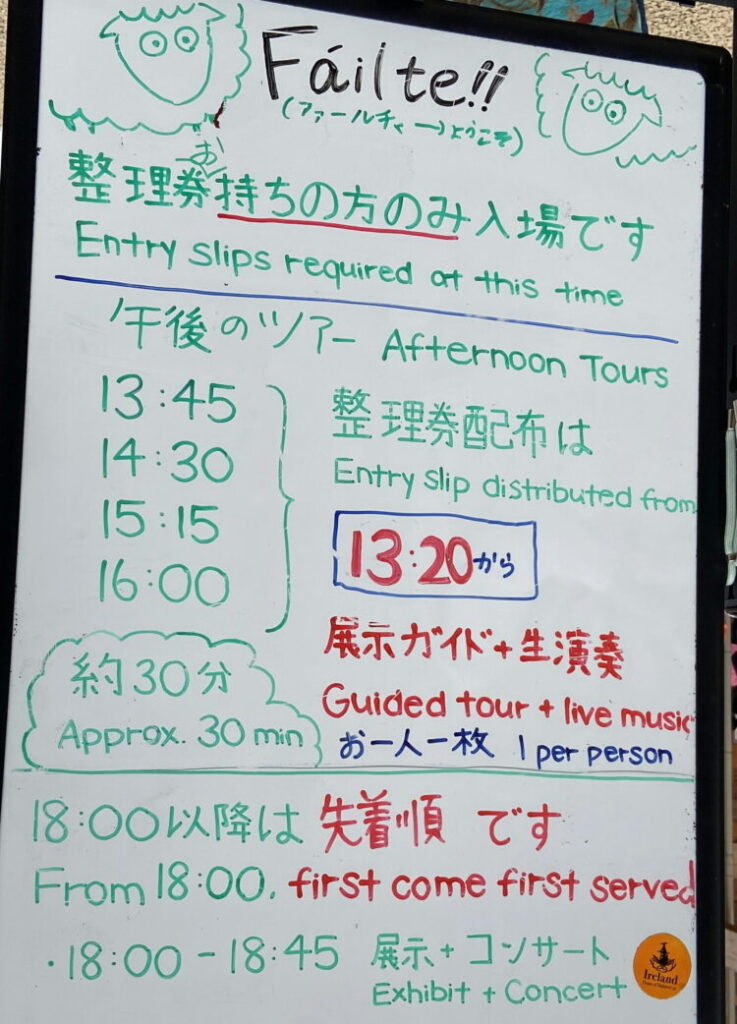 Fáilte!!
(ファールチャ→ようこそ)
整理券お持ちの方のみ入場です
Entry slips required at this time
午後のツアー Afternoon Tours
13:45
14:30
15:15
16:00
整理券配布は
Entry slip distributed from
13:20から
展示ガイド+生演奏
Guided tour + live music
お一人一枚 1 per person
約30分
Approx. 30 min
18:00以降は先着順です
From 18:00, first come first served
・18:00-18:45 展示+コンサート
Exhibit + Concert
Ireland